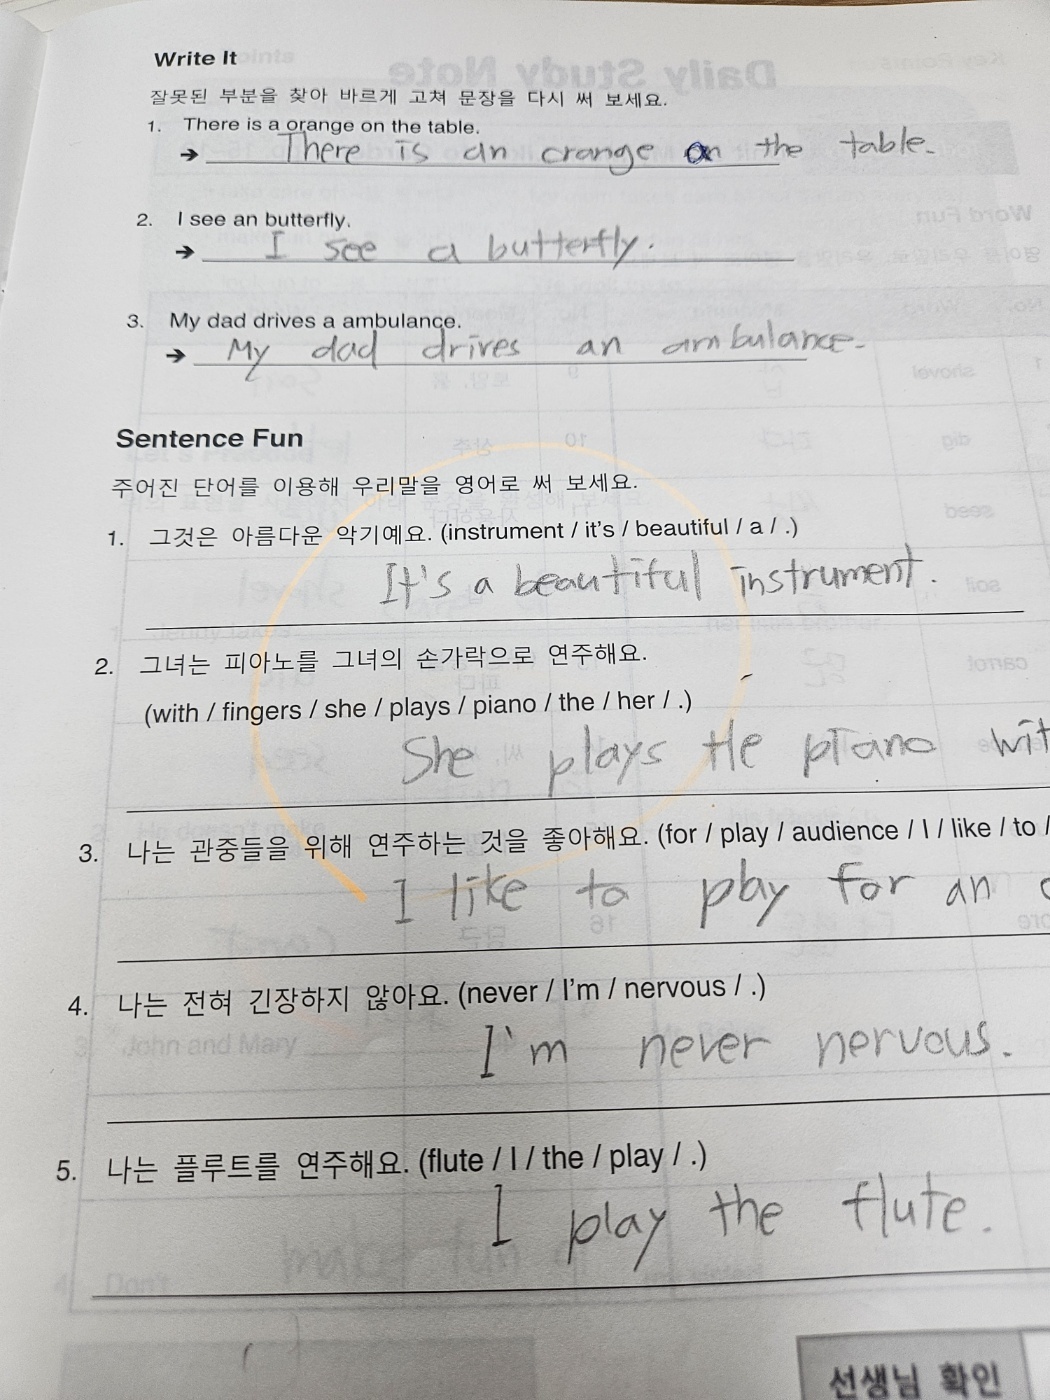 Write It
잘못된 부분을 찾아 바르게 고쳐 문장을 다시 써 보세요.
1. There is a orange on the table.
➔ There is an orange on the table.
2. I see an butterfly.
➔ I see a butterfly.
3. My dad drives a ambulance.
➔ My dad drives an ambulance.
Sentence Fun
주어진 단어를 이용해 우리말을 영어로 써 보세요.
1. 그것은 아름다운 악기예요. (instrument / it's / beautiful / a / .)
It's a beautiful instrument.
2. 그녀는 피아노를 그녀의 손가락으로 연주해요.
(with / fingers / she / plays / piano / the / her / .)
She plays the piano
3. 나는 관중들을 위해 연주하는 것을 좋아해요. (for / play / audience / I / like / to /
I like to play for an
4. 나는 전혀 긴장하지 않아요. (never / I'm / nervous / .)
I'm never nervous.
5. 나는 플루트를 연주해요. (flute / I / the / play / .)
I play the flute.
선생님 확인